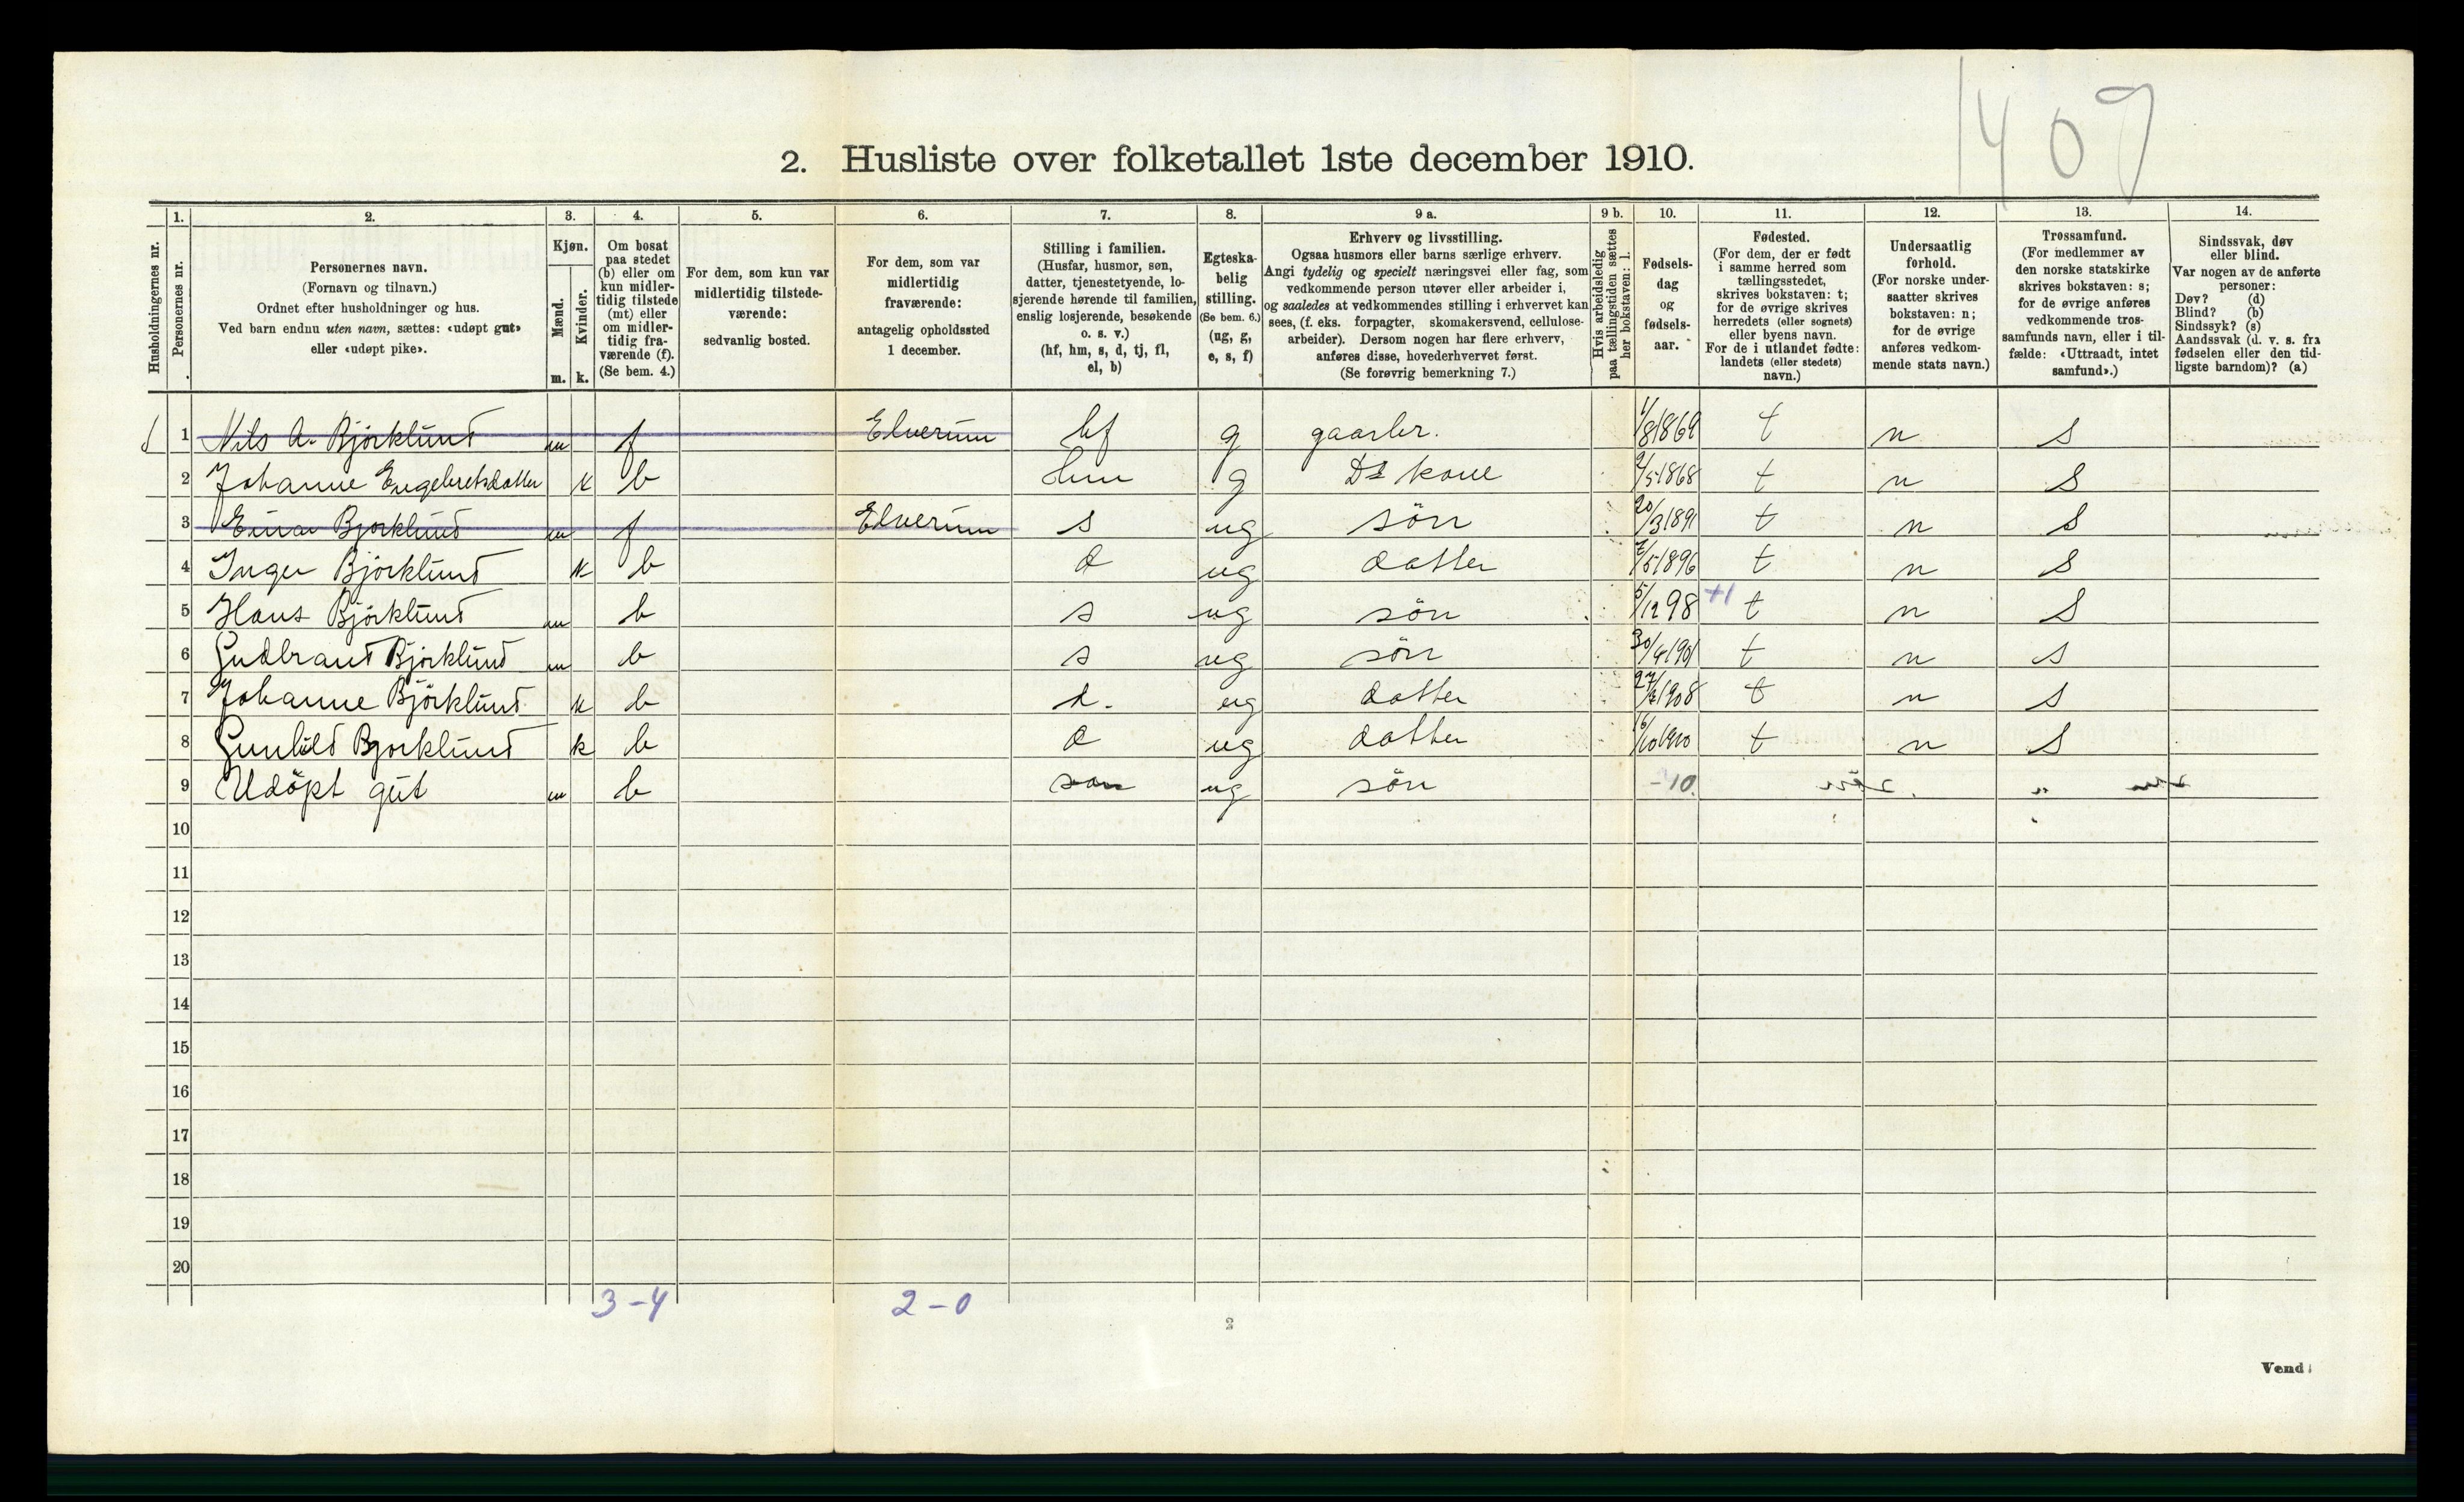 1409
2. Husliste over folketallet 1ste december 1910.
Husholdningernes nr.
1.
Personernes nr.
2.
Personernes navn.
(Fornavn og tilnavn.)
Ordnet efter husholdninger og hus.
Ved barn endnu uten navn, sættes: «udøpt gut»
eller «udøpt pike».
3.
Kjøn.
Mænd.
Kvinder.
m.
k.
4.
Om bosat
paa stedet
(b) eller om
kun midler-
tidig tilstede
(mt) eller
om midler-
tidig fra-
værende (f).
(Se bem. 4.)
5.
For dem, som kun var
midlertidig tilstede-
værende:
sedvanlig bosted.
6.
For dem, som var
midlertidig
fraværende:
antagelig opholdssted
1 december.
7.
Stilling i familien.
(Husfar, husmor, søn,
datter, tjenestetyende, lo-
sjerende hørende til familien,
enslig losjerende, besøkende
o. s. v.)
(hf, hm, s, d, tj, fl,
el, b)
8.
Egteska-
belig
stilling.
(Se bem. 6.)
(ug, g,
e, s, f)
9 a.
Erhverv og livsstilling.
Ogsaa husmors eller barns særlige erhverv.
Angi tydelig og specielt næringsvei eller fag, som
vedkommende person utøver eller arbeider i,
og saaledes at vedkommendes stilling i erhvervet kan
sees, (f. eks. forpagter, skomakersvend, cellulose-
arbeider). Dersom nogen har flere erhverv,
anføres disse, hovederhvervet først.
(Se forøvrig bemerkning 7.)
9 b.
Hvis arbeidsledig
paa tællingstiden sættes
her bokstaven: l.
10.
Fødsels-
dag
og
fødsels-
aar.
11.
Fødested.
(For dem, der er født
i samme herred som
tællingsstedet,
skrives bokstaven: t;
for de øvrige skrives
herredets (eller sognets)
eller byens navn.
For de i utlandet fødte:
landets (eller stedets)
navn.)
12.
Undersaatlig
forhold.
(For norske under-
saatter skrives
bokstaven: n;
for de øvrige
anføres vedkom-
mende stats navn.)
13.
Trossamfund.
(For medlemmer av
den norske statskirke
skrives bokstaven: s;
for de øvrige anføres
vedkommende tros-
samfunds navn, eller i til-
fælde: «Uttraadt, intet
samfund».)
14.
Sindssvak, døv
eller blind.
Var nogen av de anførte
personer:
Døv? (d)
Blind? (b)
Sindssyk? (s)
Aandssvak (d. v. s. fra
fødselen eller den tid-
ligste barndom)? (a)
1 Nils A. Björklund m f Elverum hf g gaarbr. 1/8 1869 t n S
2 Johanne Engebretsdatter k b Hm g Ds kone 2/5 1868 t n S
3 Einar Bjorklund m f Elverum s ug sön 20/3 1891 t n S
4 Inger Björklund k b d ug datter 7/5 1896 t n S
5 Hans Björklund m b s ug sön 5/12 98 +1 t n S
6 Gudbrand Björklund m b s ug sön 30/4 1901 t n S
7 Johanne Björklund k b d. ug datter 1908 t n S
8 Gunhild Bjorklund k b d ug datter 16/10 1910 t n S
9 Udöpt gut m b son ug sön -10.
10
11
12
13
14
15
16
17
18
19
20
3-4
2-0
2
Vend!